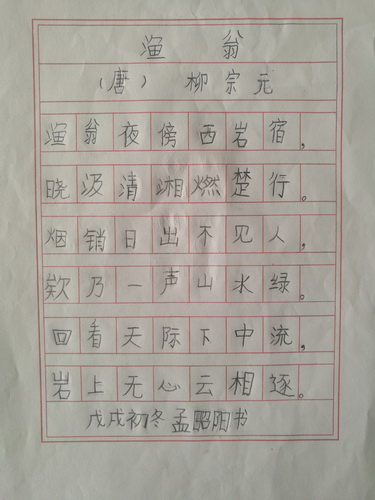 渔翁
（唐） 柳宗元
渔翁夜傍西岩宿，
晓汲清湘燃楚行。
烟销日出不见人，
欸乃一声山水绿。
回看天际下中流，
岩上无心云相逐。
戊戌初冬孟昭阳书